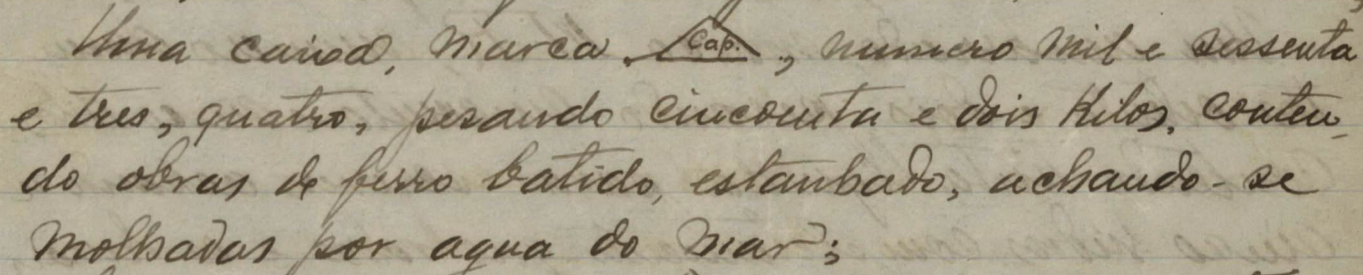 Uma caixa, marca Cap., numero mil e sessenta
e tres, quatro, pesando cincoenta e dois kilos, conten-
do obras de ferro batido, estanhado, achando-se
molhadas por agua do mar;